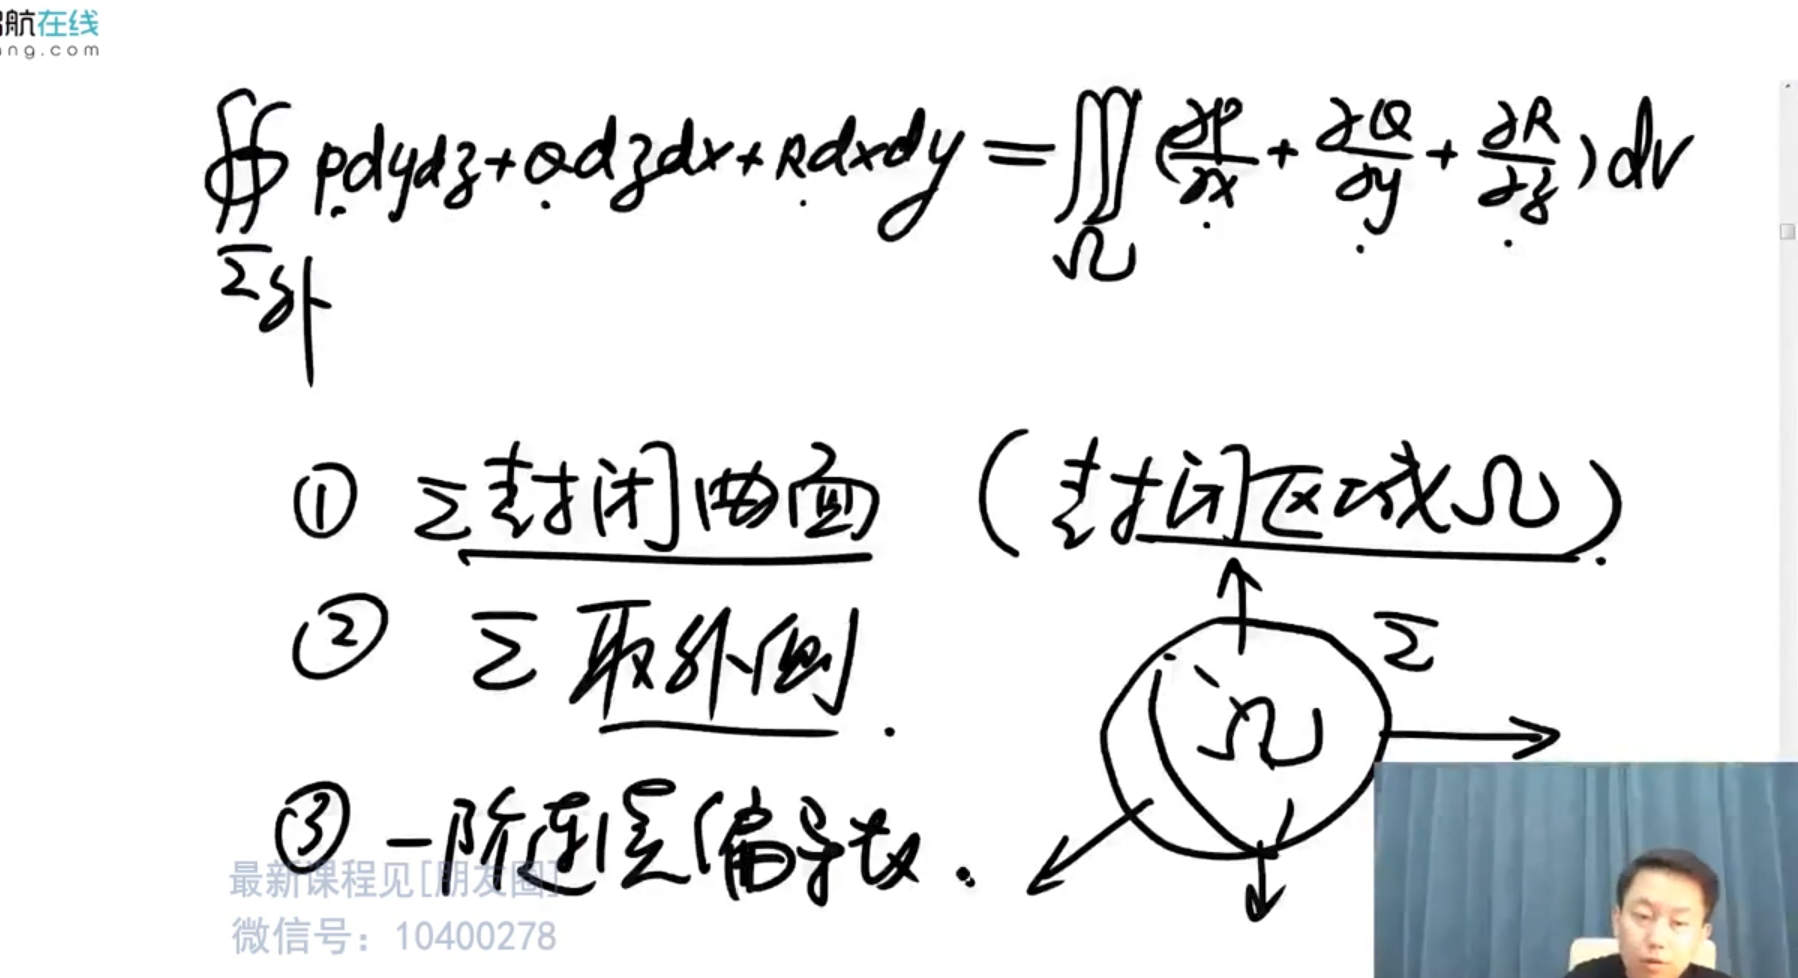 航在线
ng.com
∯ Pdydz+Qdzdx+Rdxdy=∭(∂P/∂x+∂Q/∂y+∂R/∂z)dv
Σ外 Ω
① Σ封闭曲面 (封闭区域Ω).
② Σ 取外侧.
Σ
Ω
③ 一阶连续偏导数.
最新课程见[朋友圈]
微信号：10400278